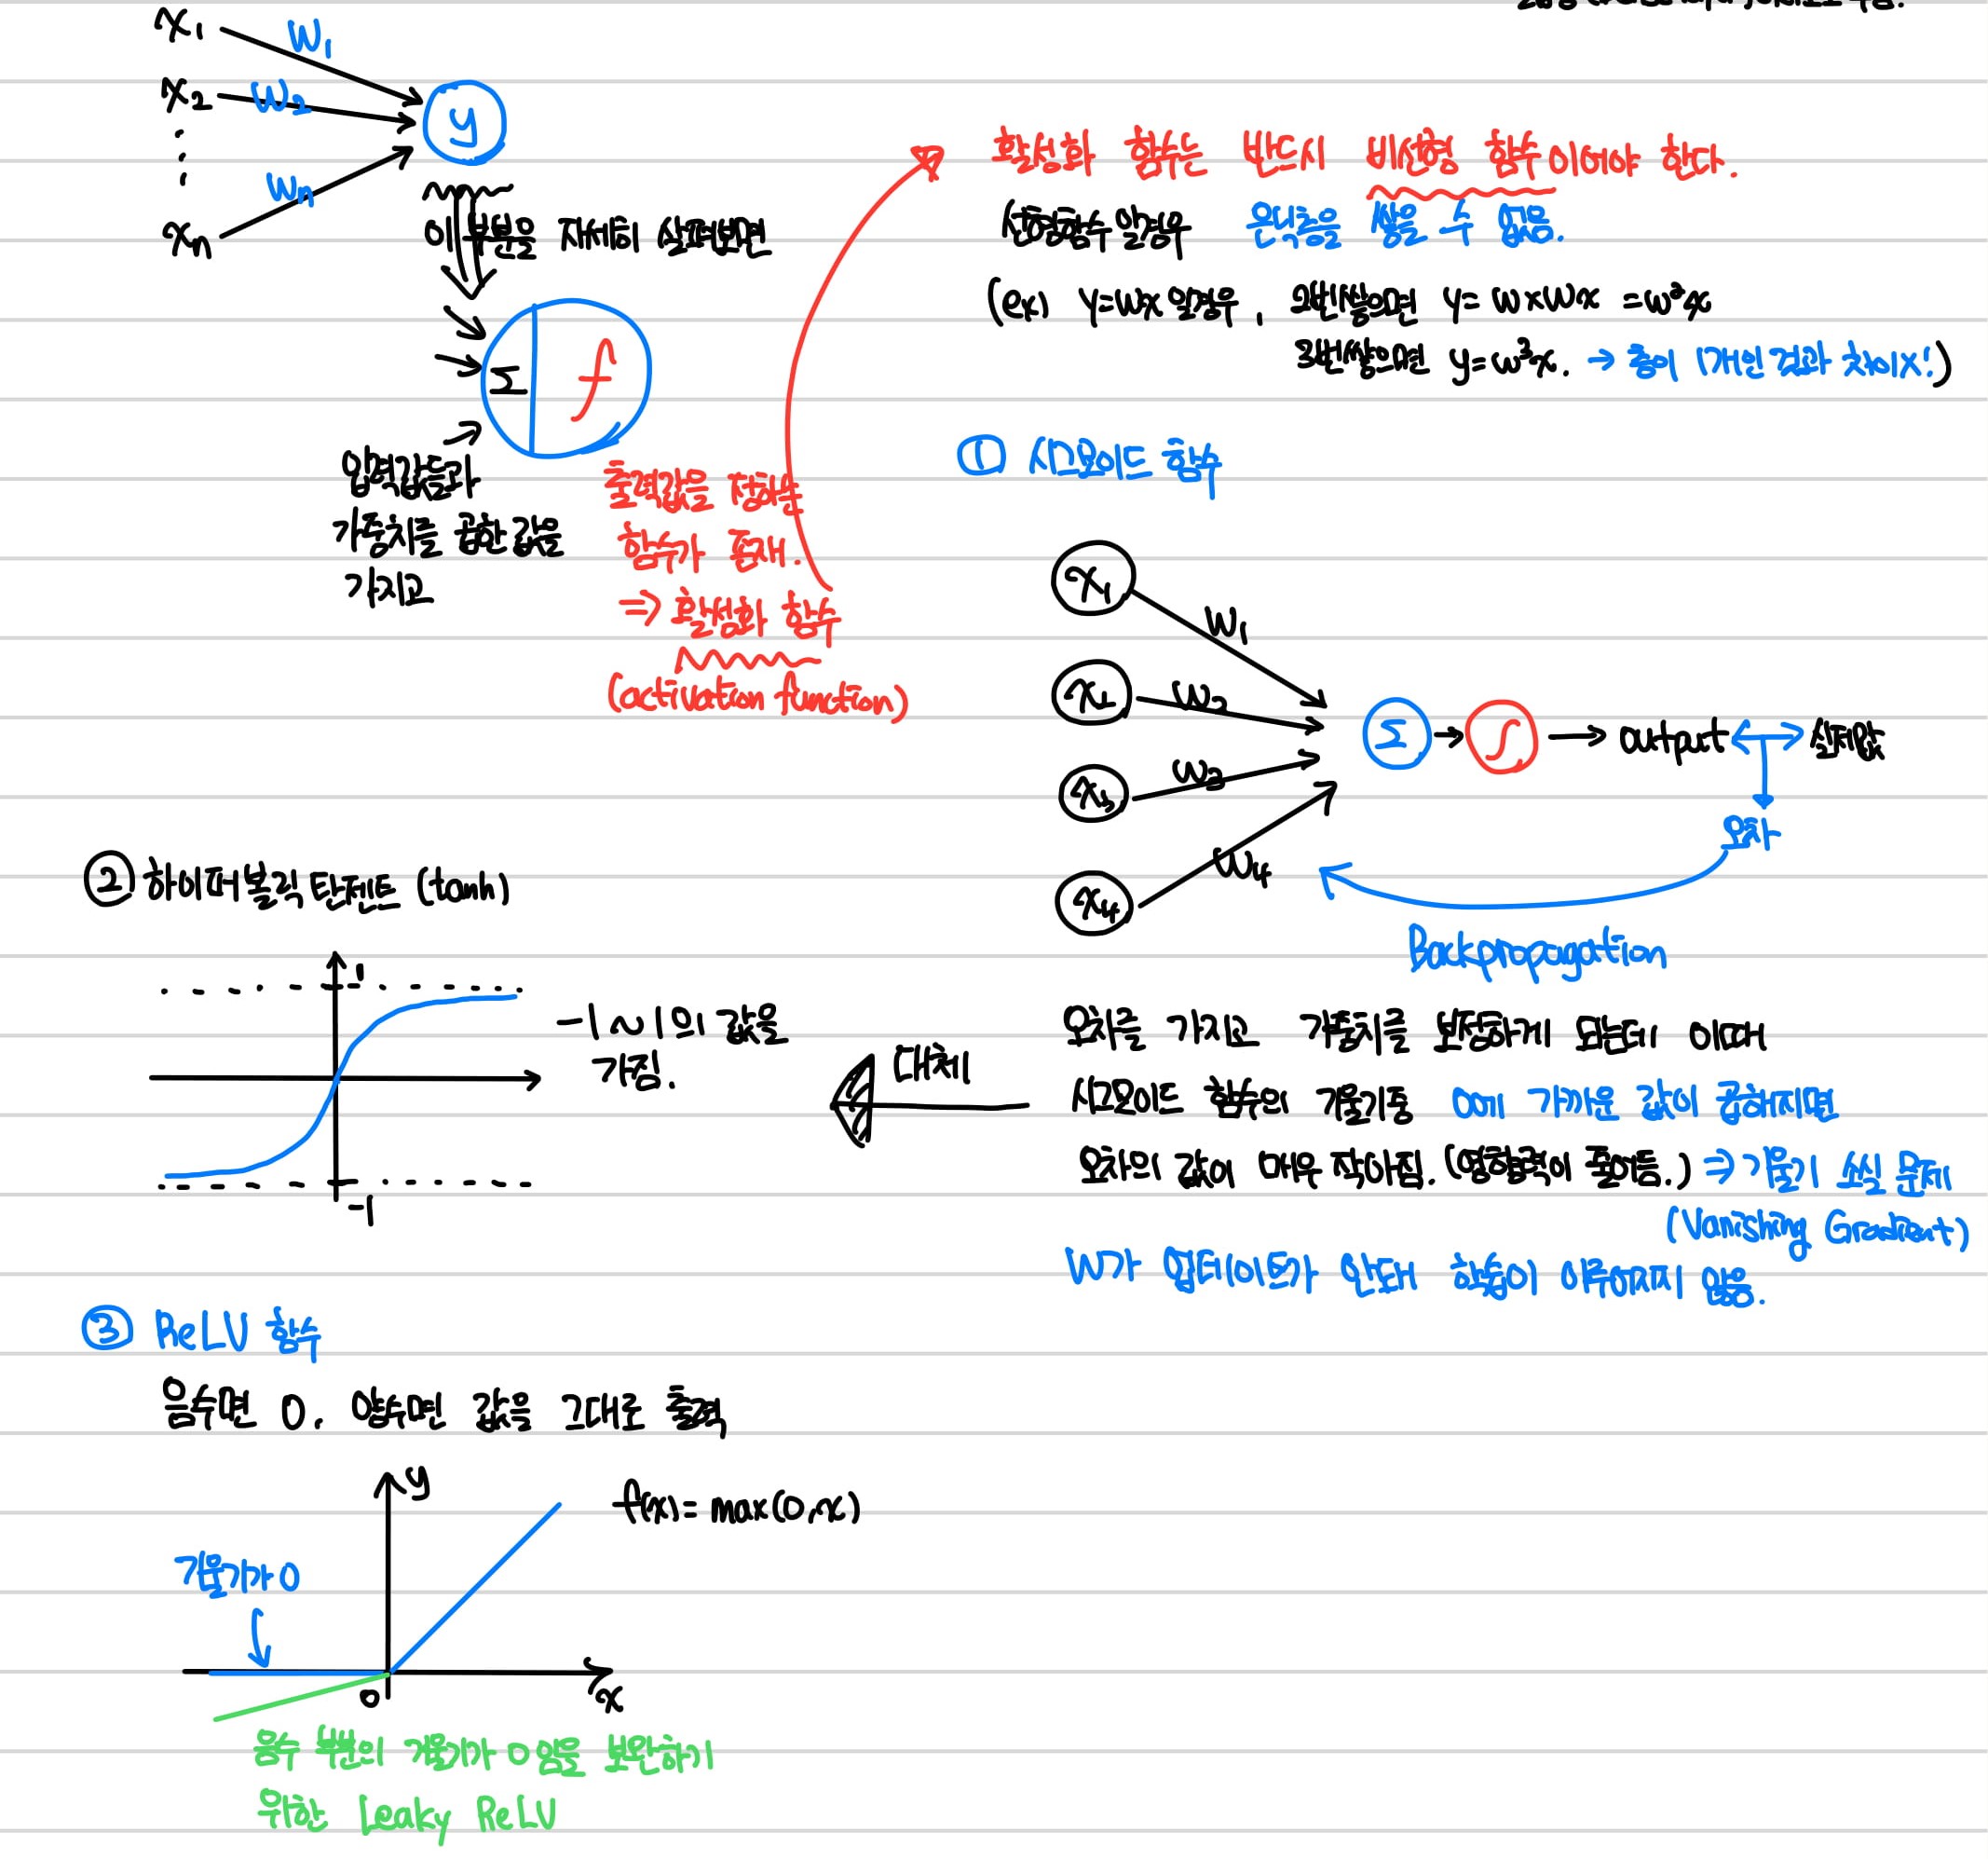 x₁
w₁
x₂
w₂
y
xₙ
wₙ
이 부분을 자세히 살펴보면
Σ
f
입력값들과
가중치를 곱한 값을
가지고
출력값을 정하는
함수가 존재.
⇒ 활성화 함수
(activation function)
활성화 함수는 반드시 비선형 함수이어야 한다.
선형함수일경우 은닉층을 쌓을 수 없음.
(ex) y=wx일경우, 2번쌓으면 y=w×wx =w²x
3번쌓으면 y=w³x. → 층이 1개인것과 차이X!)
① 시그모이드 함수
x₁
w₁
x₂
w₂
x₃
w₃
x₄
w₄
Σ → ∫ → output ↔ 실제값
오차
Backpropagation
오차를 가지고 가중치를 보정하게 되는데 이때
시그모이드 함수의 기울기중 0에 가까운 값이 곱해지면
오차의 값이 매우 작아짐. (영향력이 줄어듦.) ⇒ 기울기 소실 문제
(Vanishing Gradient)
W가 업데이트가 안돼 학습이 이루어지지 않음.
대체
② 하이퍼볼릭탄젠트 (tanh)
1
-1
-1~1의 값을
가짐.
③ ReLU 함수
음수면 0, 양수면 값을 그대로 출력
y
f(x)= max(0,x)
기울기가 0
0
x
음수 부분의 기울기가 0임을 보완하기
위한 Leaky ReLU